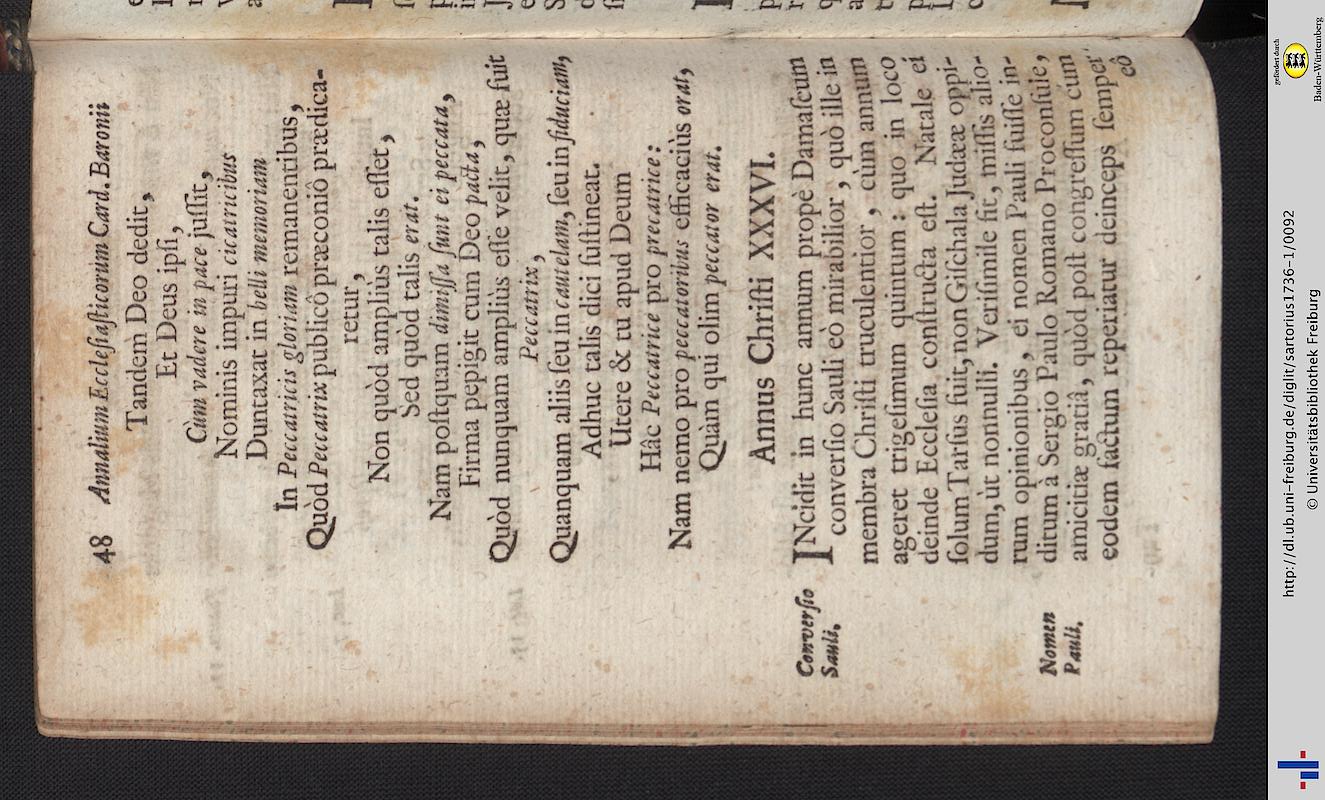 48 Annalium Eccleſiaſticorum Card. Baronii
Tandem Deo dedit,
Et Deus ipſi,
Cùm vadere in pace juſſit,
Nominis impuri cicatricibus
Duntaxat in belli memoriam
In Peccatricis gloriam remanentibus,
Quòd Peccatrix publicô præconiô prædica-
retur,
Non quòd amplius talis eſſet,
Sed quòd talis erat.
Nam poſtquam dimiſſa ſunt ei peccata,
Firma pepigit cum Deo pacta,
Quòd nunquam amplius eſſe velit, quæ fuit
Peccatrix,
Quanquam aliis ſeu in cautelam, ſeu in fiduciam,
Adhuc talis dici ſuſtineat.
Utere & tu apud Deum
Hâc Peccatrice pro precatrice:
Nam nemo pro peccatoribus efficaciùs orat,
Quàm qui olim peccator erat.
Annus Chriſti XXXVI.
Converſio
Sauli.
INcidit in hunc annum propè Damaſcum
converſio Sauli eò mirabilior, quò ille in
membra Chriſti truculentior, cùm annum
ageret trigeſimum quintum: quo in loco
deinde Eccleſia conſtructa eſt. Natale ei
ſolum Tarſus fuit, non Giſchala Judææ oppi-
dum, ùt nonnulli. Veriſimile fit, miſſis alio-
rum opinionibus, ei nomen Pauli fuiſſe in-
Nomen
Pauli.
ditum à Sergio Paulo Romano Proconſule,
amicitiæ gratiâ, quòd poſt congreſſum cum
eodem factum reperiatur deinceps ſemper
eô
http://dl.ub.uni-freiburg.de/diglit/sartorius1736-1/0092
© Universitätsbibliothek Freiburg
gefördert durch
Baden-Württemberg